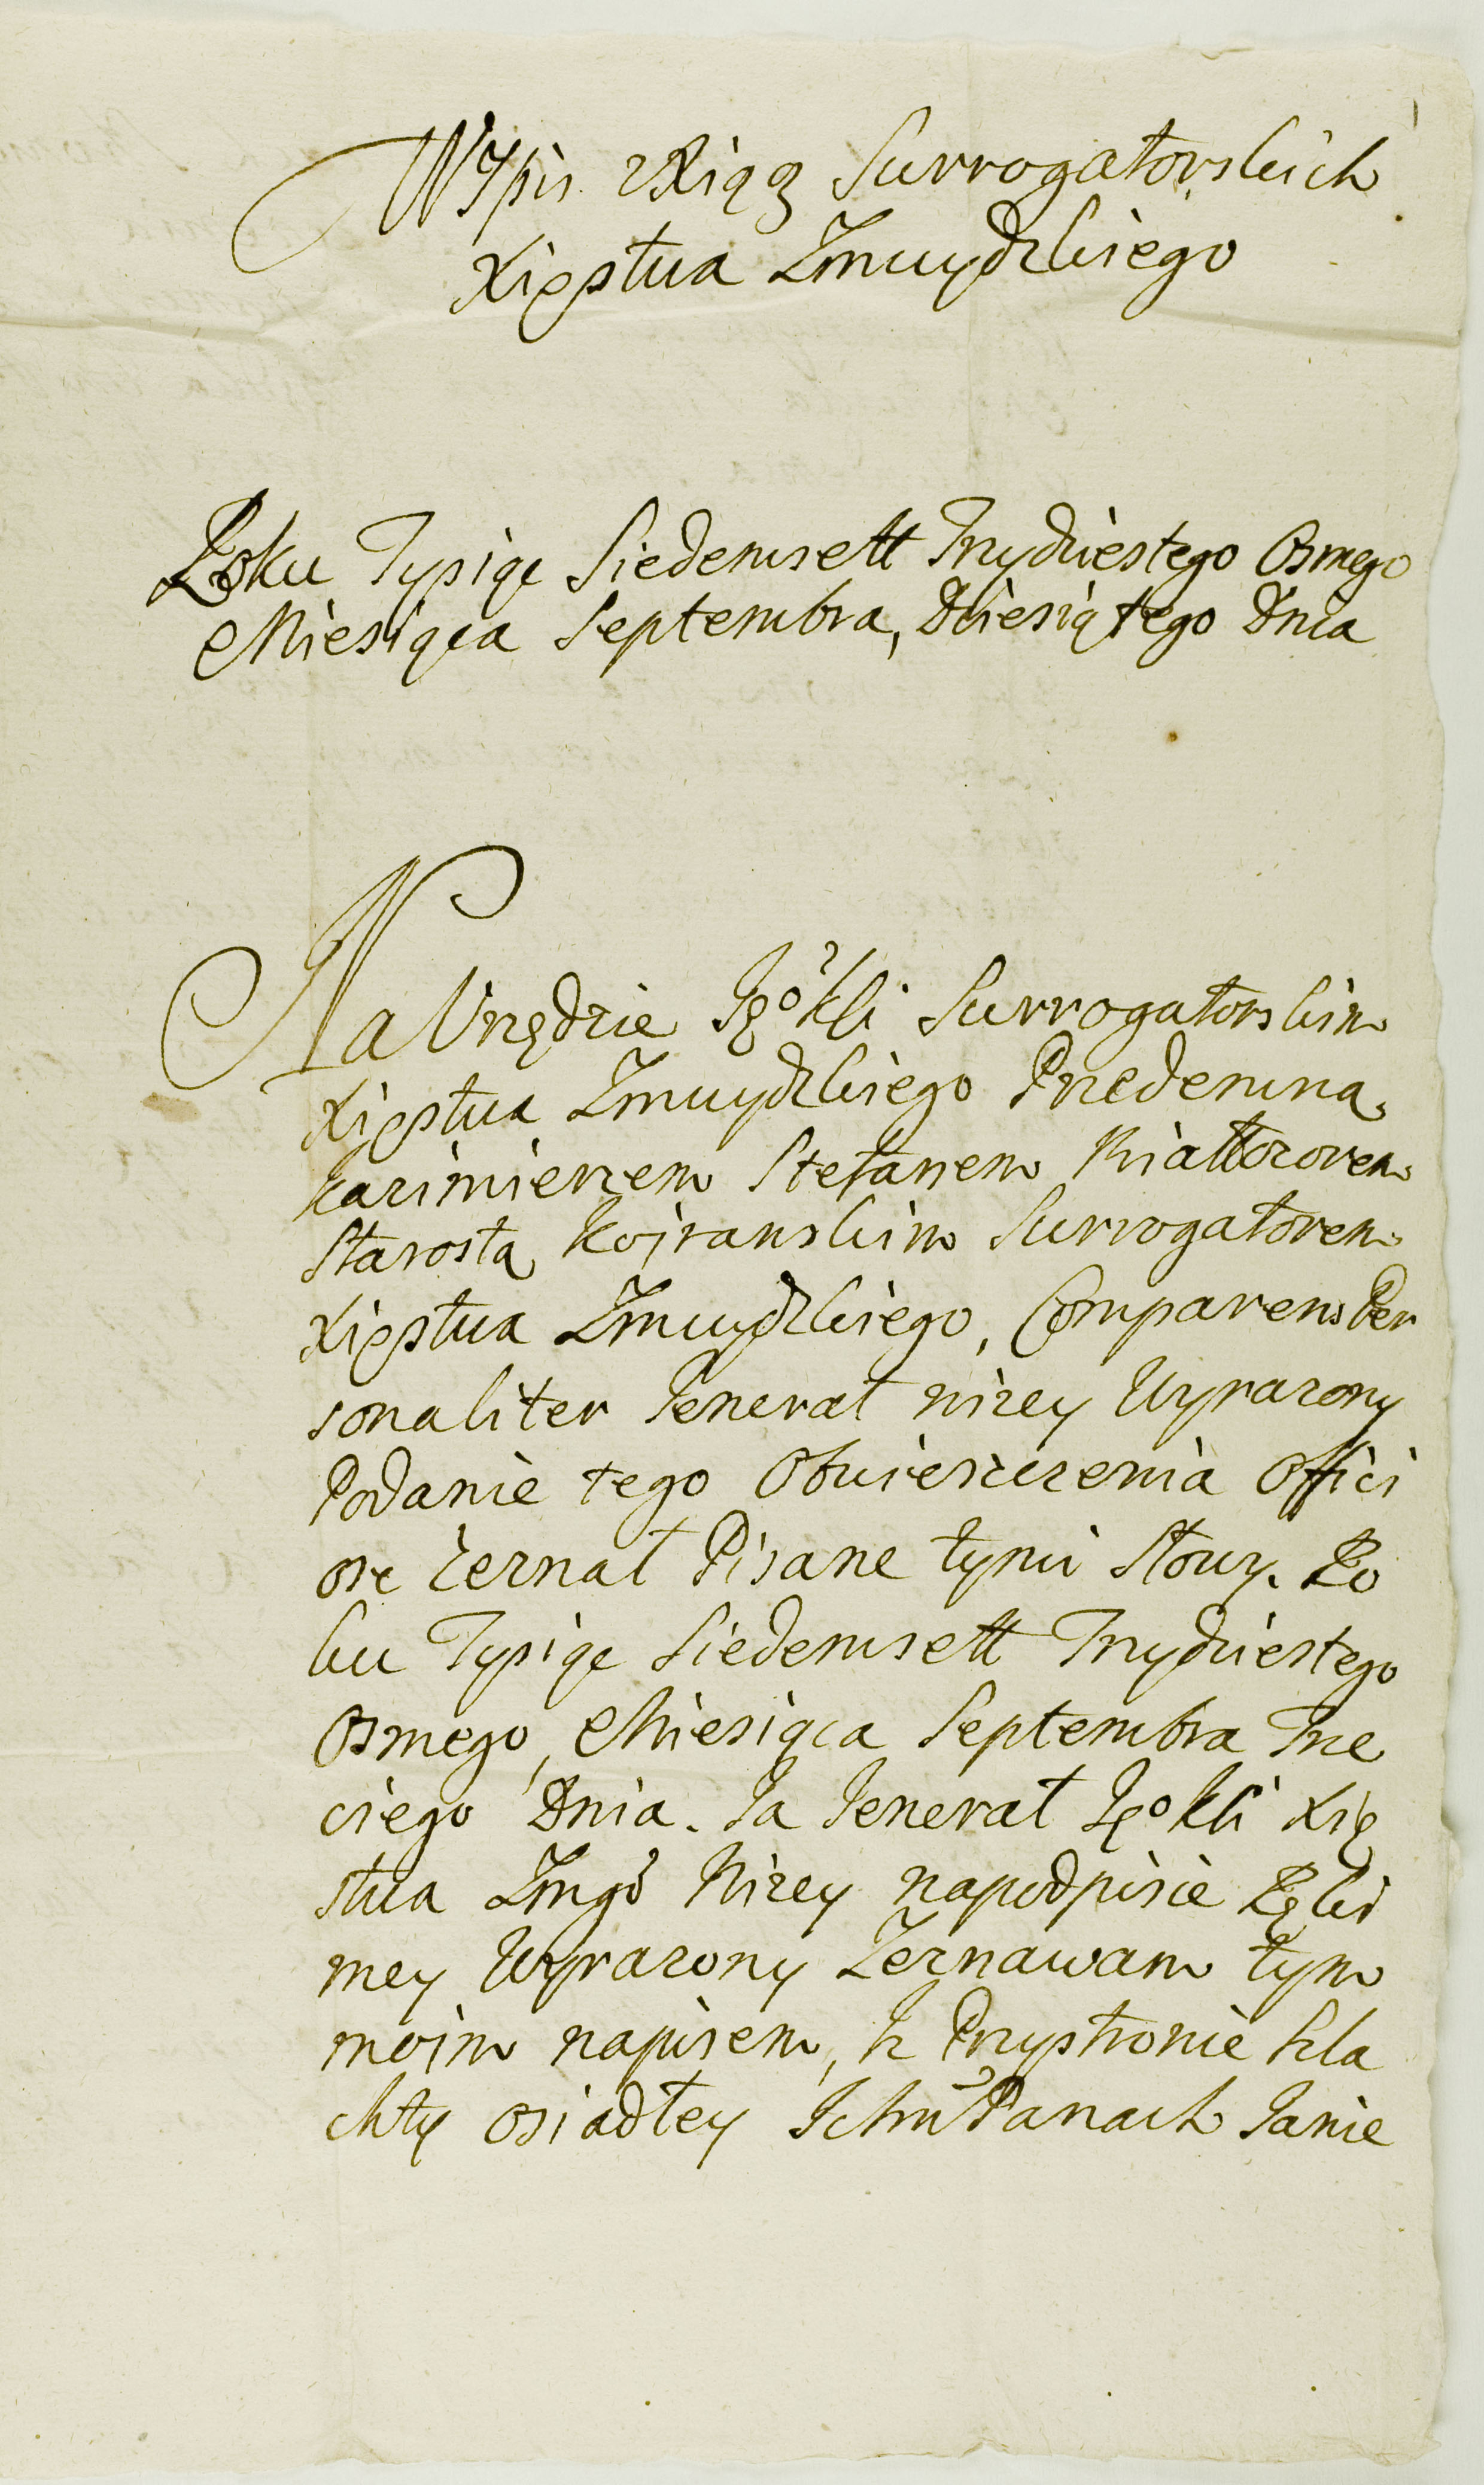 Wypis zXiąg Surrogatorskich
Xięstwa Zmuydzkiego
Roku Tysiąc Siedemsett Trzydziestego Osmego
Miesiąca Septembra, Dziesiątego Dnia
Na Vrzędzie Jgo Kr Mci Surrogatorskim
Xięstwa Zmuydzkiego Przedemną
Kazimierzem Stefanem
Starostą Surrogatorem
Xięstwa Zmuydzkiego, Comparens Per
sonaliter Jenerał nizey Wyrazony
Podanie tego Obwieszczenia Offici
ose zeznał Pisane tymi Słowy. Ro
ku Tysiąc Siedemsett Trzydziestego
Osmego, Miesiąca Septembra Trze
ciego Dnia. Ja Jenerał Xię
stwa Zmgo Nizey napodpisie Ręki
mey Wyrazony Zeznawam tym
moim napisem, Iz Przystronie Szla
chty osiadłey Ichm Panach Janie